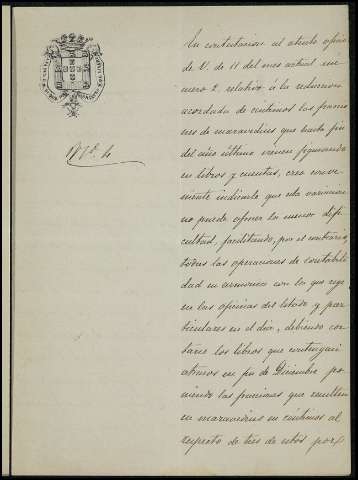 Nº. 4
En contestacion al atento oficio
de V. de 11 del mes actual nu-
mero 2, relativo á la reduccion
acordada de céntimos las fraccio-
nes de maravedises que hasta fin
del año último vienen figurando
en libros y cuentas, creo conve-
niente indicarle que esta variacion
no puede ofrecer la menor difi-
cultad, facilitando, por el contrario,
todas las operaciones de contabili-
dad en armonia con lo que rige
en las oficinas del Estado y par-
ticulares en el dia, debiendo cer-
rarse los libros que contengan
atrasos en fin de Diciembre po-
niendo las fracciones que resulten
en maravedises en céntimos al
respecto de tres de estos por